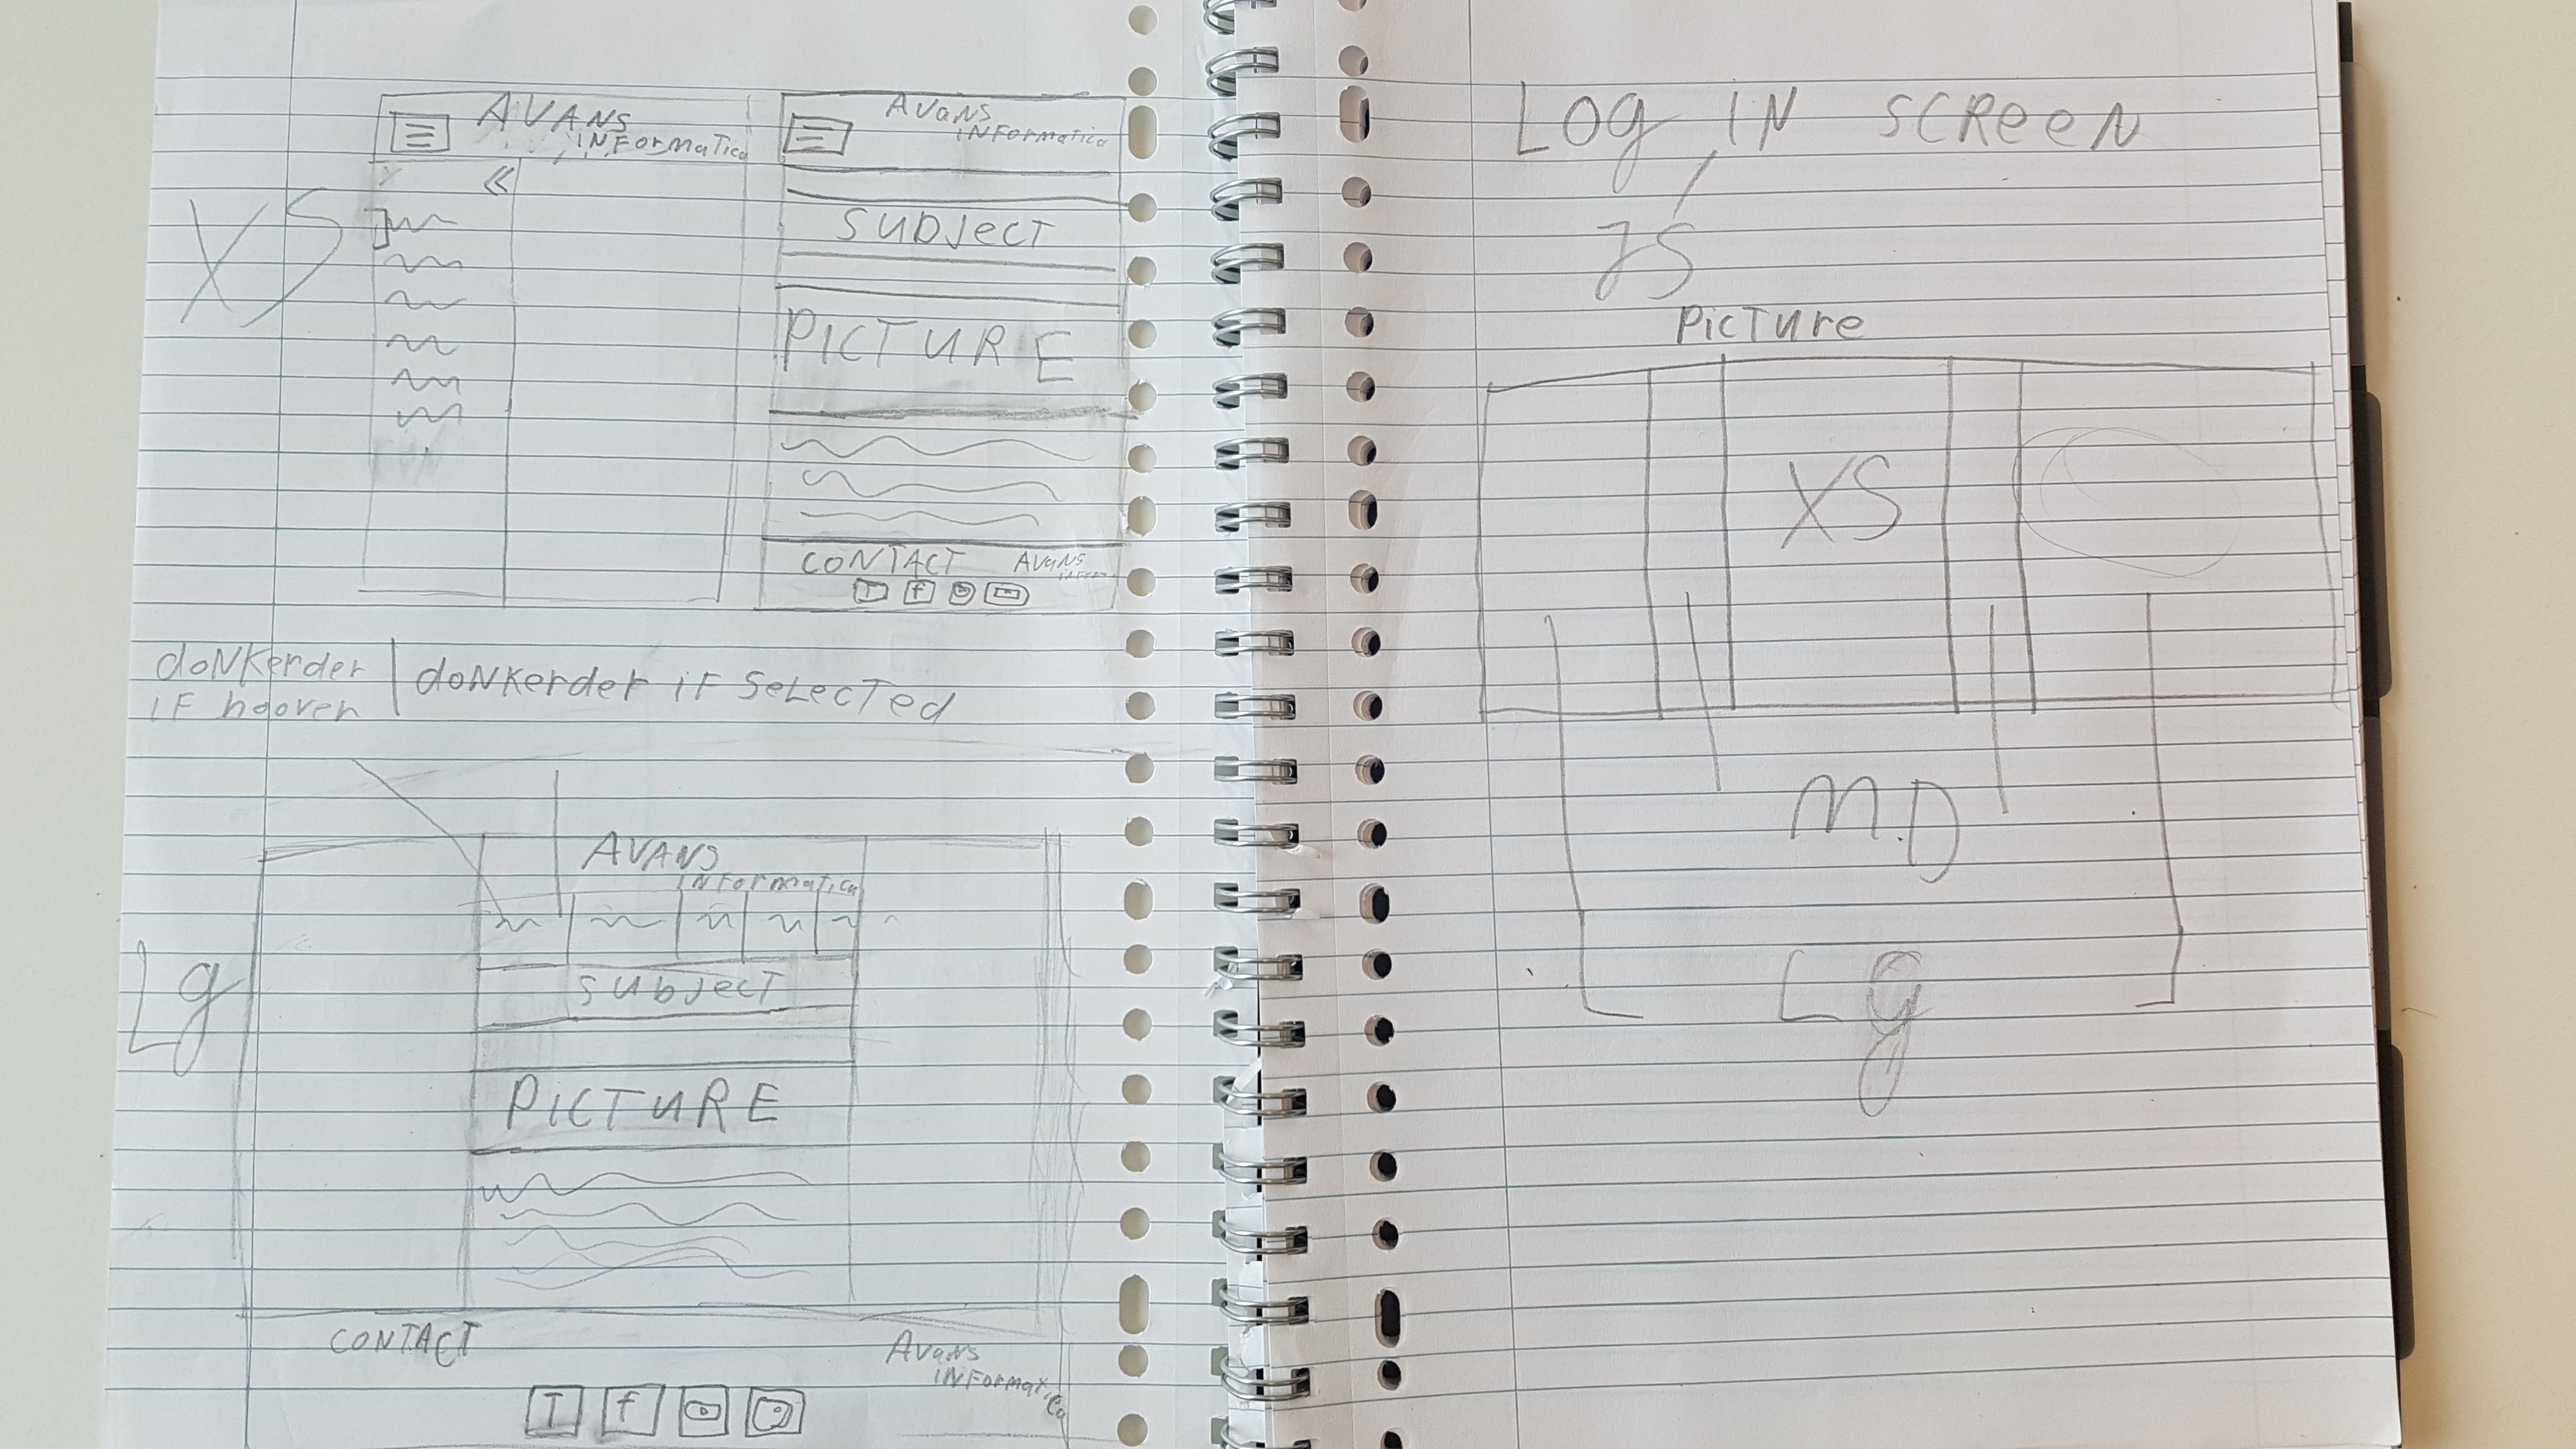 XS
AVANS
INFormaTica
«
AvaNS
INFormatica
SUBJecT
PICTURE
CONTACT
AvaNS
T f
doNKerder
iF hoover
doNKerder iF SeLecTed
Lg
AVANS
INFormatica
subJecT
PiCTURE
CONTACT
AvaNS
INFormatica
T f
Log IN SCReeN
JS
PicTure
XS
M.D
Lg